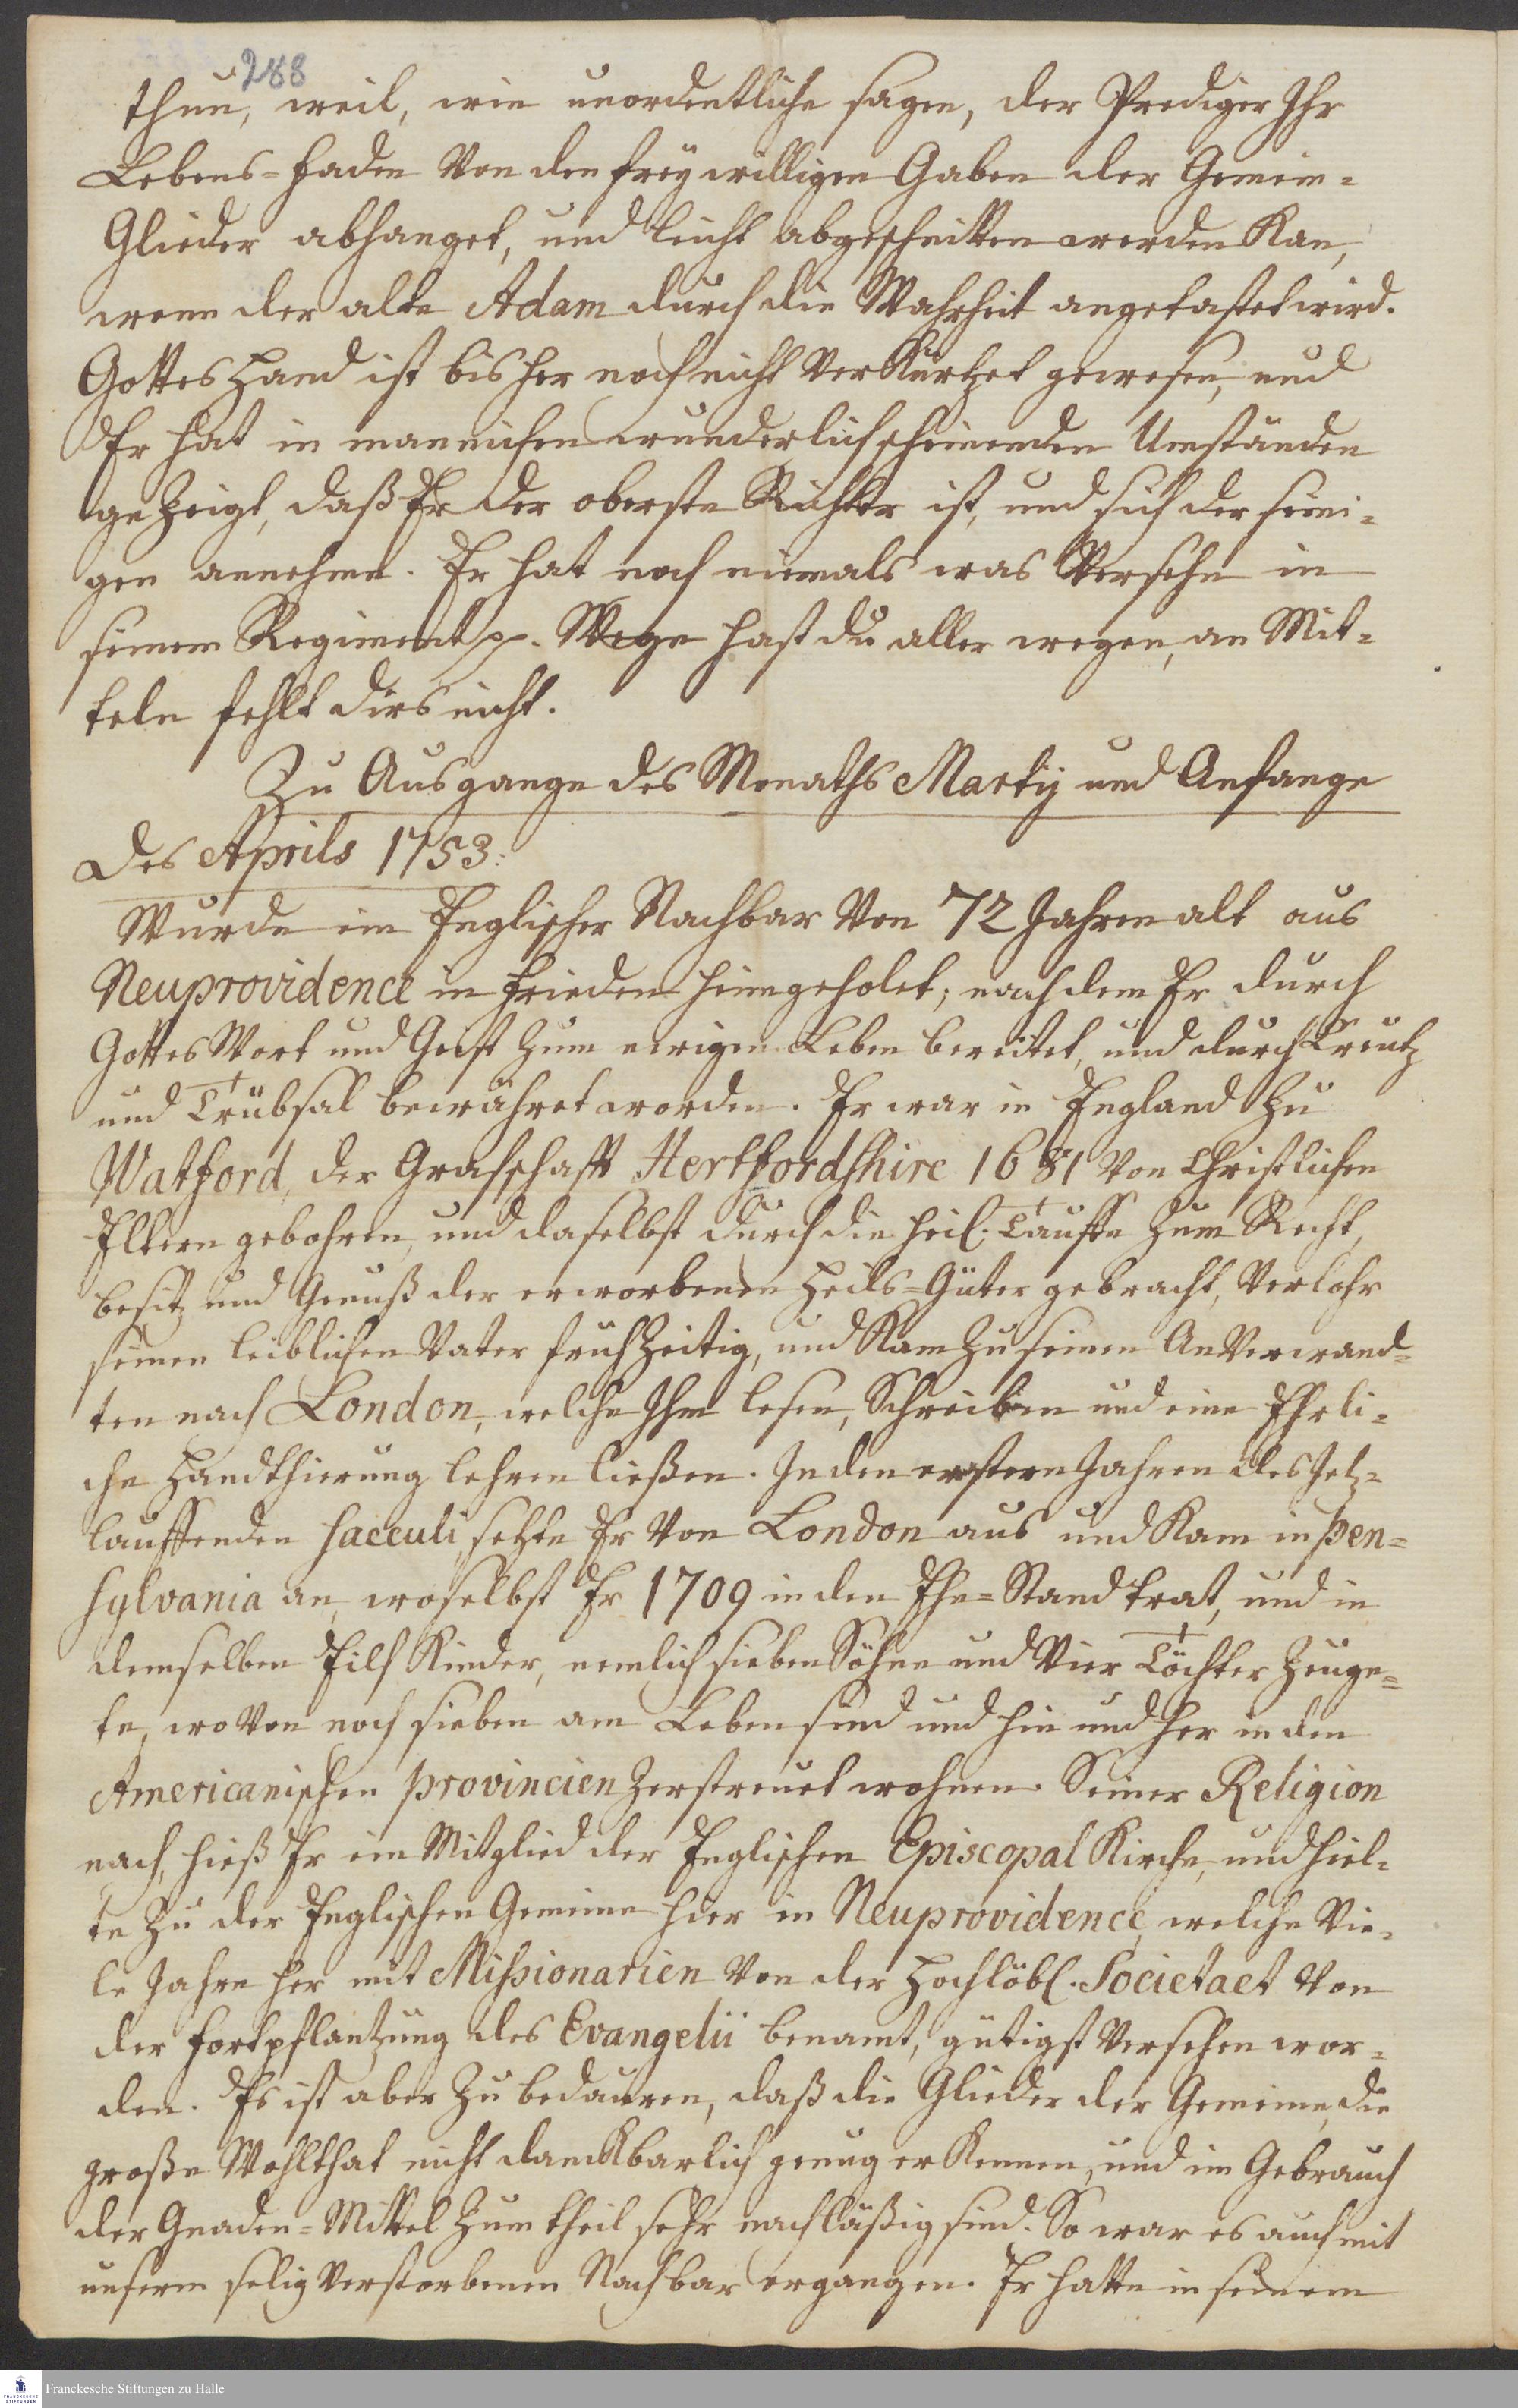 288
thun, weil, wie unordentliche sagen, der Prediger Ihr
Lebens=Faden Von den freywilligen Gaben der Gemein=
Glieder abhanget, und leicht abgeschnitten werden Kan,
wenn der alte Adam durch die Wahrheit angetastet wird.
Gottes Hand ist bisher noch nicht VerKürtzet gewesen, und
Er hat in mannichen wunderlich scheinenden Umständen
gezeigt, daß Er der oberste Richter ist, und sich der seini=
gen annehme. Er hat noch niemals was Versehn in
seinem Regiment p. Wege hast du aller wegen, an Mit=
teln fehlt dirs nicht.
Zu Ausgange des Monaths Martij und Anfange
des Aprils 1753:
Wurde ein Englischer Nachbar Von 72 Jahren alt aus
Neuprovidence in Frieden heimgeholet, nach dem Er durch
Gottes Wort und Geist zum ewigen Leben bereitet, und durch Creutz
und Trübsal bewähret worden. Er war in England zu
Watford, der Grafschafft Hertfordshire 1681 Von Christlichen
Eltern gebohren, und daselbst durch die heil. Tauffe zum Recht,
besitz und Genuß der erworbenen Heils=Güter gebracht, Verlohr
seinen leiblichen Vater frühzeitig, und Kam zu seinen AnVerwand=
ten nach London, welche Ihm lesen, Schreiben und eine Ehrli=
che Handthierung lehren ließen. In den erstern Jahren des Jetz=
lauffenden Saeculi, setzte Er Von London aus und Kam in Pen=
sylvania an, woselbst Er 1709 in den Ehe=Stand trat, und in
demselben Eilf Kinder, nemlich sieben Söhne und Vier Töchter zeuge=
te, woVon noch sieben am Leben sind und hin und her in den
Americanischen provincien zerstreuet wohnen. Seiner Religion
nach, hieß Er ein Mitglied der Englischen Episcopal Kirche, und hiel=
te zu der Englischen Gemeine hier in Neuprovidence, welche Vie=
le Jahre her mit Missionarien Von der Hochlöbl. Societaet Von
der Fortpflantzung des Evangelii benamt, gütigst Versehen wor=
den. Es ist aber zu bedauren, daß die Glieder der Gemeine, die
große Wohlthat nicht danckbarlich genug erKennen, und im Gebrauch
der Gnaden=Mittel zum theil sehr nachläßig sind. So war es auch mit
unserm selig Verstorbenen Nachbar ergangen. Er hatte in seinem
Franckesche Stiftungen zu Halle